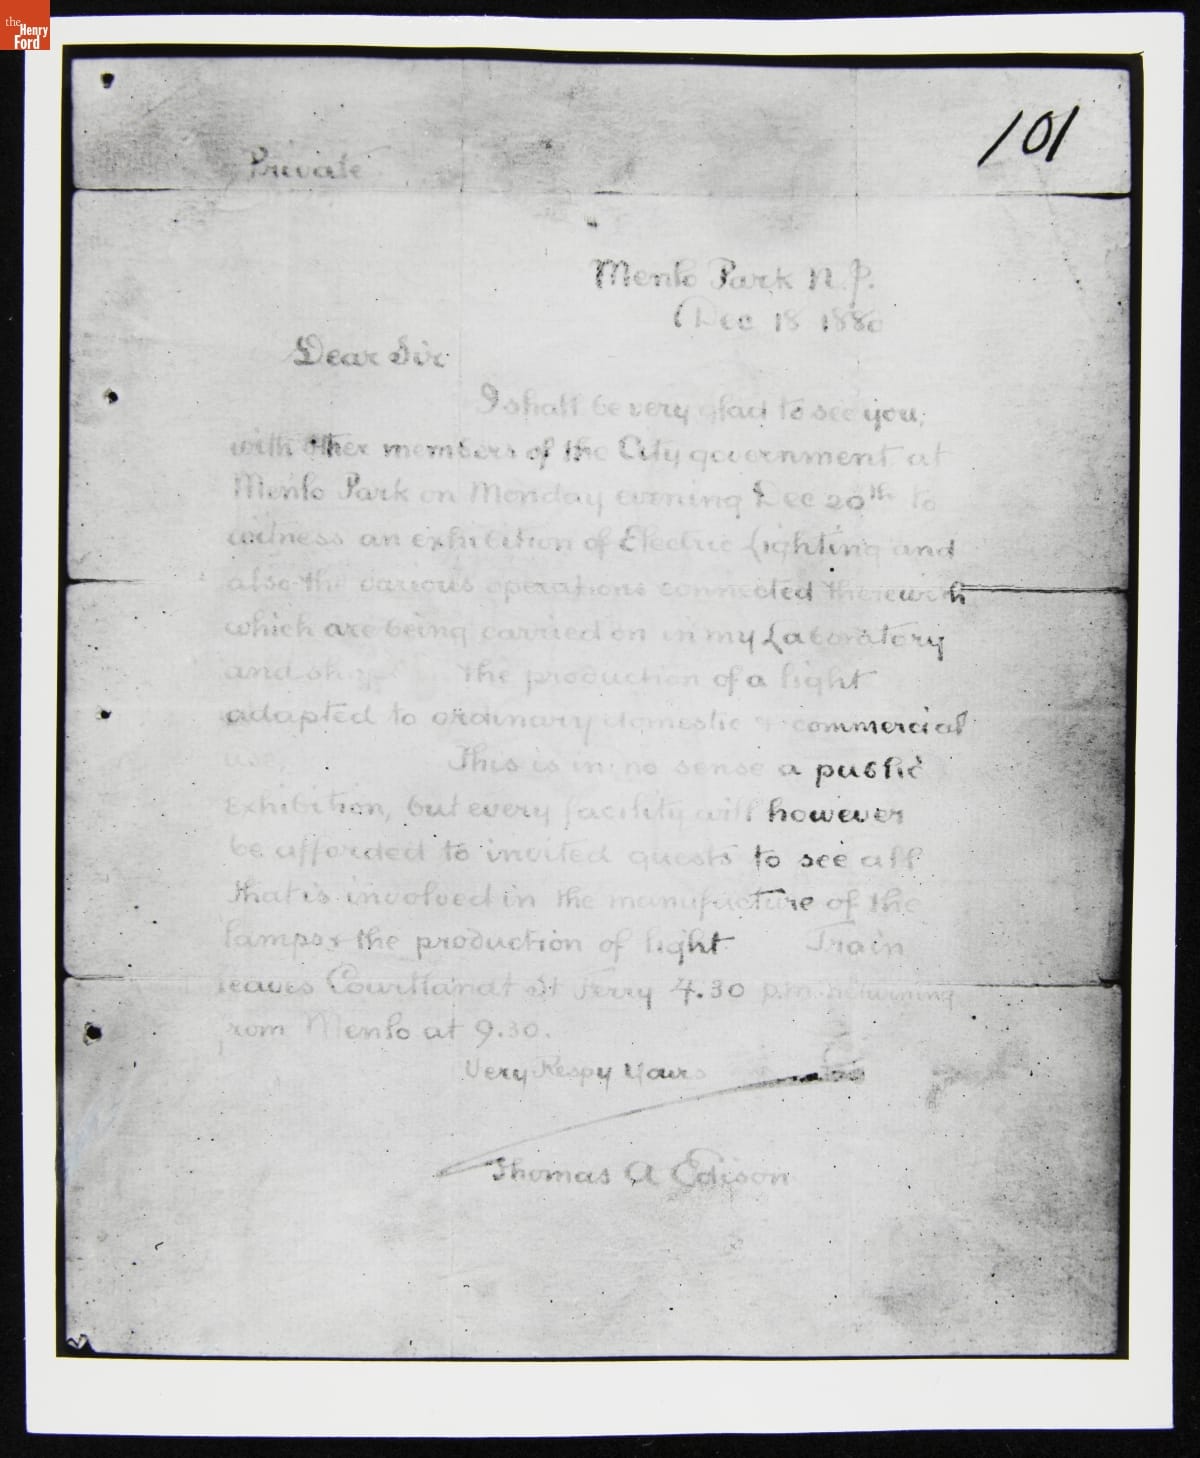 the
Henry
Ford
101
Private
Menlo Park N.J.
Dec 18 1880
Dear Sir
I shall be very glad to see you,
with other members of the City government at
Menlo Park on Monday evening Dec 20th to
witness an exhibition of Electric Lighting and
also the various operations connected therewith
which are being carried on in my Laboratory
and shop The production of a light
adapted to ordinary domestic & commercial
use. This is in no sense a public
Exhibition, but every facility will however
be afforded to invited guests to see all
that is involved in the manufacture of the
lamps & the production of light Train
leaves Courtlandt St Ferry 4.30 p.m. returning
from Menlo at 9.30.
Very Respy Yours
Thomas A Edison